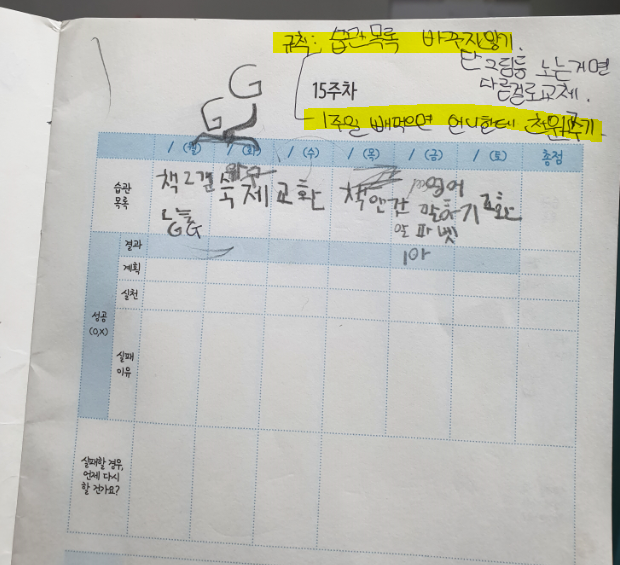 규칙: 습관목록 바꾸지않기.
단 그림등 노는거면
다른걸로교체.
G
G
15주차
1주일 빼먹으면 언니한테 천원주기
/ (월) / (화) / (수) / (목) / (금) / (토) 총점
습관 목록
책 2권 숙제 교환 책 영어
알파벳
결과
계획
실천
성공 (O,X)
실패 이유
실패할 경우, 언제 다시 할 건가요?